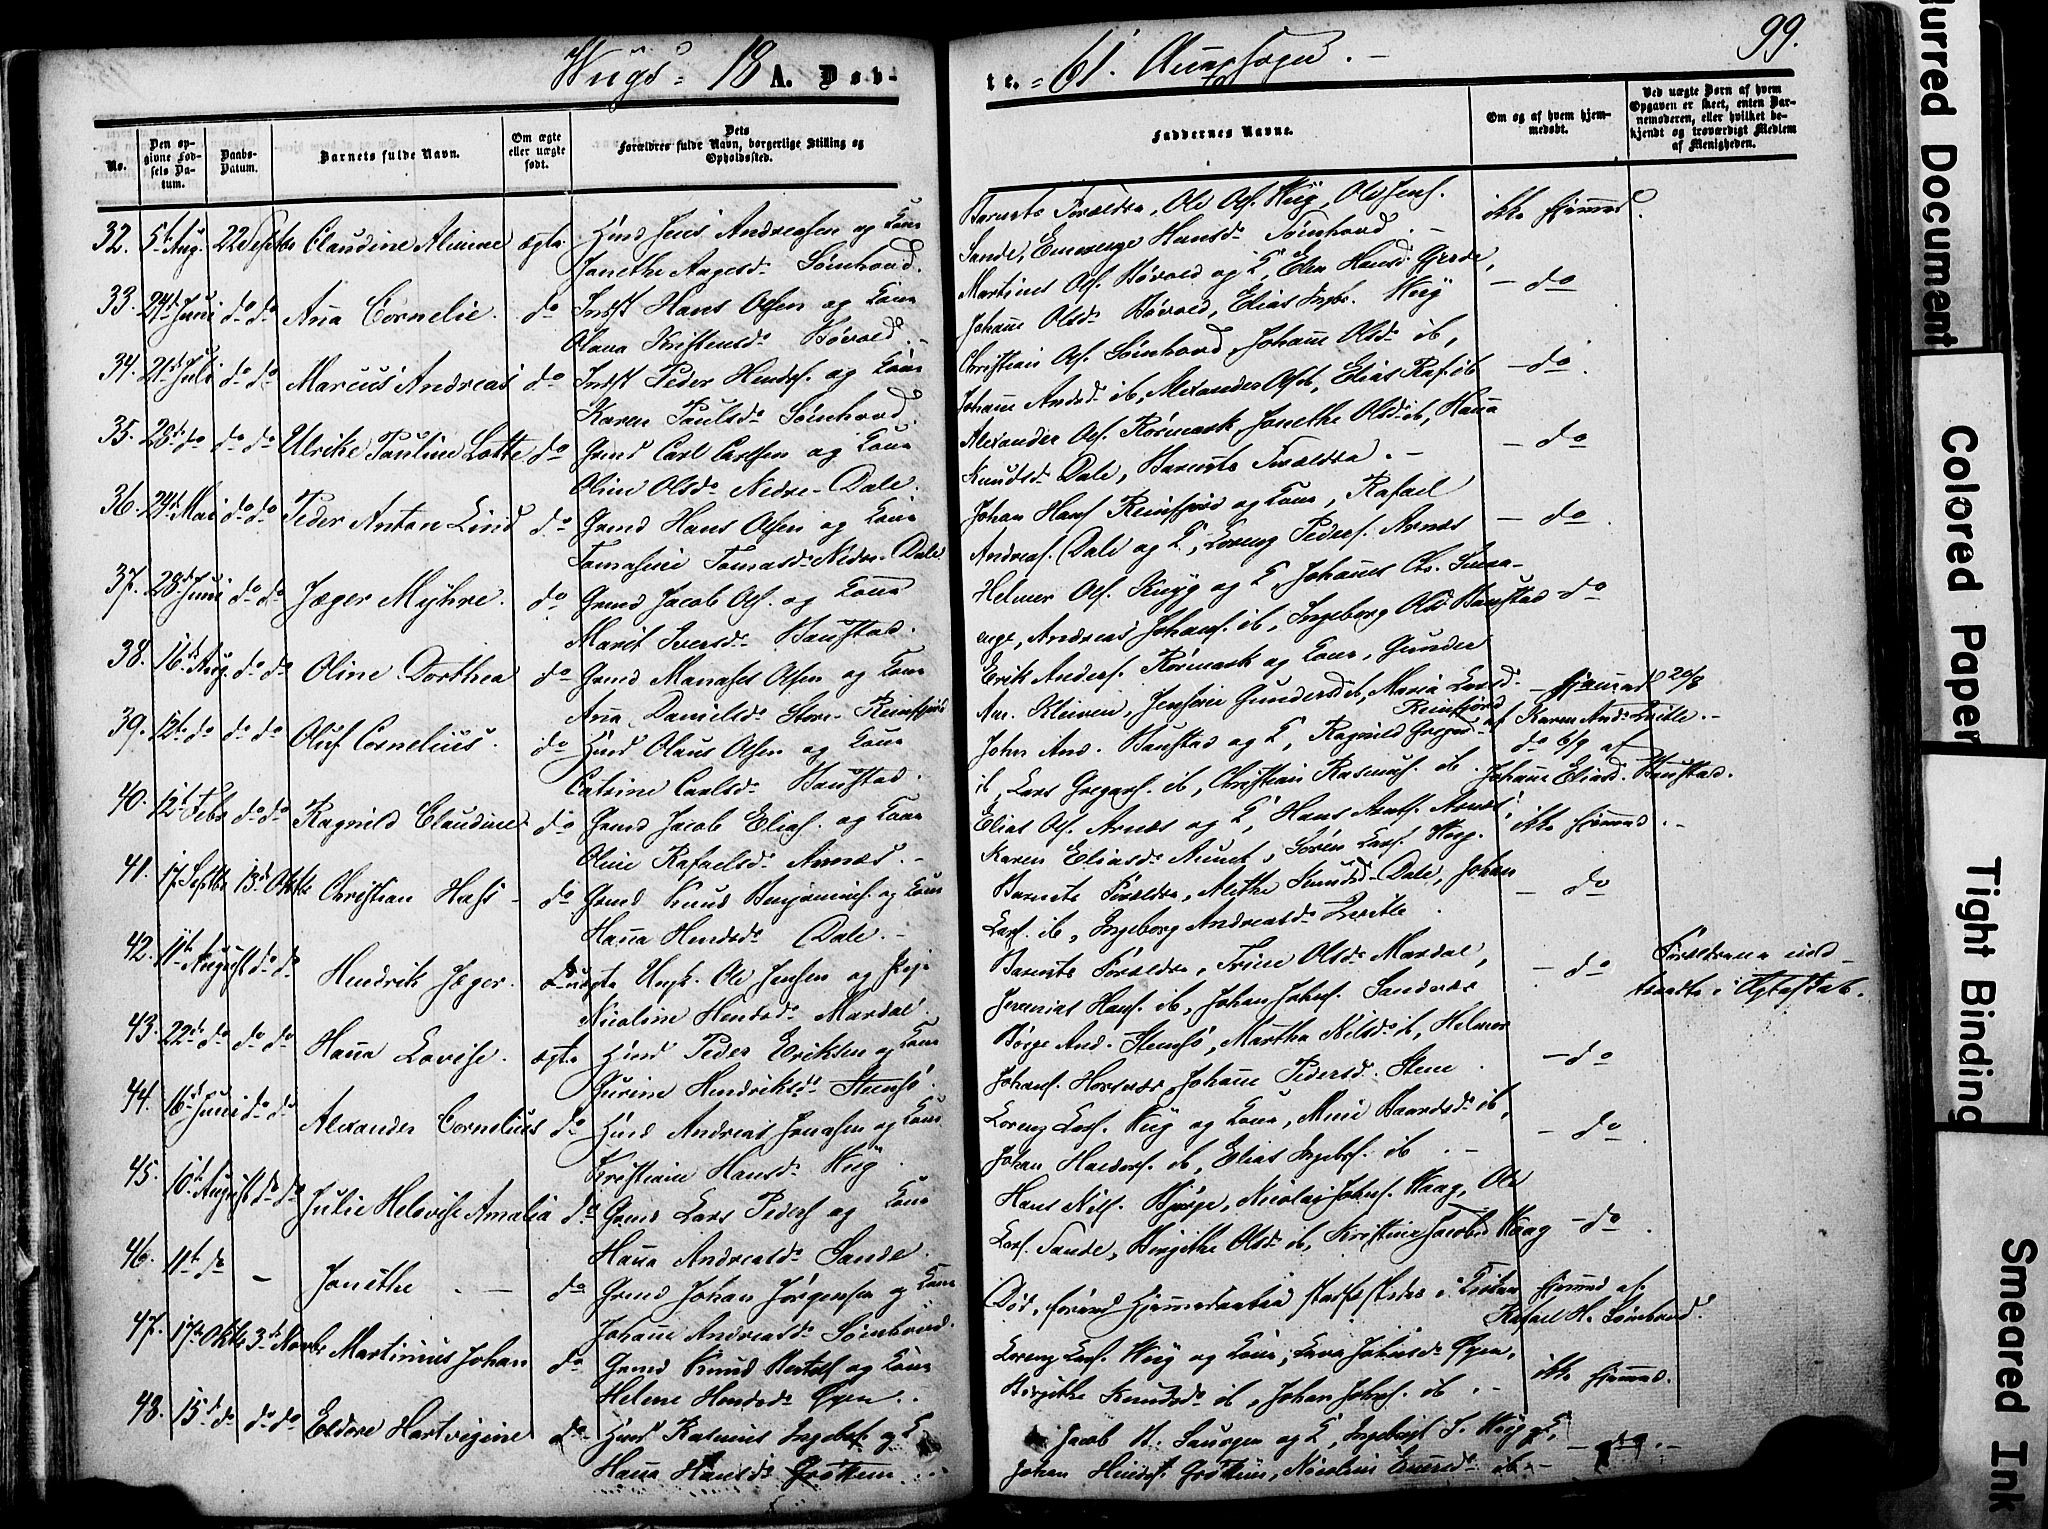 Wiigs- 18 A. Døb-
te. 61. Annexsogn. -
99.
No.
Den opgivne Fødsels Datum.
Daabs-Datum.
Barnets fulde Navn.
Om ægte eller uægte født.
Dets Forældres fulde Navn, borgerlige Stilling og Opholdssted.
Faddernes Navne.
Om og af hvem hjemmedøbt.
Ved uægte Børn af hvem Opgaven er skeet, enten Barnemoderen, eller hvilket bekjendt og troværdigt Medlem af Menigheden.
32. 5te Aug. 22 Septbr Claudine Almine ægte Huusmd Jens Andreasen og Kone
Janethe Aagesd. Sørnhovd.
Barnets Forældre, Ole Ols. Wiig, Ole Jens.
Sande, Emerenze Hansd. Sørnhovd. -
ikke hjemmed.
33. 24de Juni do do Ana Cornelie. do Indst Hans Olsen og Kone
Olava Kristensd. Høvold. -
Martinus Ols. Høvold og K, Elen Hansd. Gjerde,
Johane Olsd. Høvold, Elias Ingebr. Wiig
- do
34. 21de Juli do do Marcus Andreas do Indst Peder Hendss. og Kone
Karen Paulsd. Sørnhovd.
Christian Ols. Sørnhovd, Johane Olsd. ib,
Johane Andsd. ib, Alexander Ols ib, Elias Raf. ib
- do
35. 28de do do do Ulrike Pauline Lotte do Grmd Carl Carlsen og Kone
Oline Olsd. Nedre-Dale.
Alexander Ols. Rørmark, Janethe Olsd. ib, Hana
Knudsd. Dale, Barnets Forældre. -
- do
36. 24de Mai do do Peder Anton Lind do Grmd Hans Olsen og Kone
Tomasine Tomasd. Nedre-Dale
Johan Hans. Reinfjord og Kone, Rafael
Andreas. Dale og K, Lorenz Peders. Arnæs
- do
37. 28de Juni do do Jæger Myhre. do Grmd Jacob Ols. og Kone
Marit Iversd. Baustad.
Helmer Ols. og K, Johanes Chr.
Andreas Johans. ib, Ingeborg Olsd. Baustad
do
38. 16de Aug. do do Oline Dorthea do Grmd Manases Olsen og Kone
Ana Danielsd. Store-Reinfjord
Erik Anders. Rørmark og Kone, Gunder
Kleiven, Gundersd. ib, Maria Larsd. Reinfjord
- hjemmed 20/8
af Karen And. Qvitle. -
39. 12te do do do Oluf Cornelius. do Huusmd Olaus Olsen og Kone
Catrine Carlsd. Baustad.
John And. Baustad og K, Ragnild Gregersd.
ib, Lars Gregers. ib, Christian Rasmus. ib
do 6/9 af
Johane Eliasd. Baustad.
40. 12te Febr do do Ragnild Claudine do Grmd Jacob Elias. og Kone
Oline Rafaelsd. Arnæs. -
Elias Ols. Arnæs og K, Hans Arnts. Arnæs,
Karen Eliasd. Aunet, Søren Lars. Wiig.
ikke hjemmed. -
41. 17 Septbr 13de Oktbr Christian Hass - do Grmd Knud Benjamins. og Kone
Hana Hendsd. Dale. -
Barnets Forældre, Alethe Knudsd. Dale, Johan
Lars. ib, Ingeborg Andreasd. Qvitle.
- do
42. 11te August do do Hendrik Jæger. uægte Ungk. Ole Jensen og Pige
Nicoline Hendsd. Mardal.
Barnets Forældre, Trine Olsd. Mardal,
Jeremias Hans. ib, Johan Johns. Sandvær
- do
Forældrene indtraadte i Ægteskab.
43. 22de do do do Hana Lovise. ægte Huusmd Peder Eriksen og Kone
Gurine Hendriksd. Stensø.
Børge And. Stensø, Martha Nilsd. ib, Helmer
Johans. Horsvær, Johane Pedersd. Stene.
- do
44. 16de Juni do do Alexander Cornelius do Huusmd Andreas Jonassen og Kone
Kristiane Hansd. Wiig.
Lorenz Lars. Wiig og Kone, Mine Baardsd. ib,
Johan Haldors. ib, Elias Ingebr. ib. -
- do
45. 10de August do do Julie Helevise Amalia do Grmd Lars Peders og Kone
Hana Andreasd. Sande.
Hans Nils. Bjørge, Nicolai Johns. Waag, Ole
Lars. Sande, Birgithe Olsd. ib, Kristine Jacobsd. Waag
- do.
46. 11te do - Janethe. - do Grmd Johan Jørgensen og Kone
Johane Andreasd. Sørnhovd.
Død, førend Hjemmedaaben stadfæstedes i Kirken
Hjemmed af
Rafael H. Sørnhovd.
47. 17de Oktbr 3de Novbr Martinus Johan do Grmd Knud Bertels og Kone
Helene Hendsd. Øyen.
Lorenz Lars. Wiig og Kone, Lava Johansd. Øyen,
Birgithe Knudsd. ib, Johan Johns. ib. -
ikke hjemmed.
48. 15de do do do Eldore Hartvigine do Huusmd Rasmus Ingebr. og K
Hana Hansd. Grøttem.
Jacob H. og K, Ingebrigt S. Wiig og K,
Johan Hends. Grøttem, Nicoline Enersd. ib. -
- do. -
Blurred Document
Colored Paper
Tight Binding
Smeared Ink